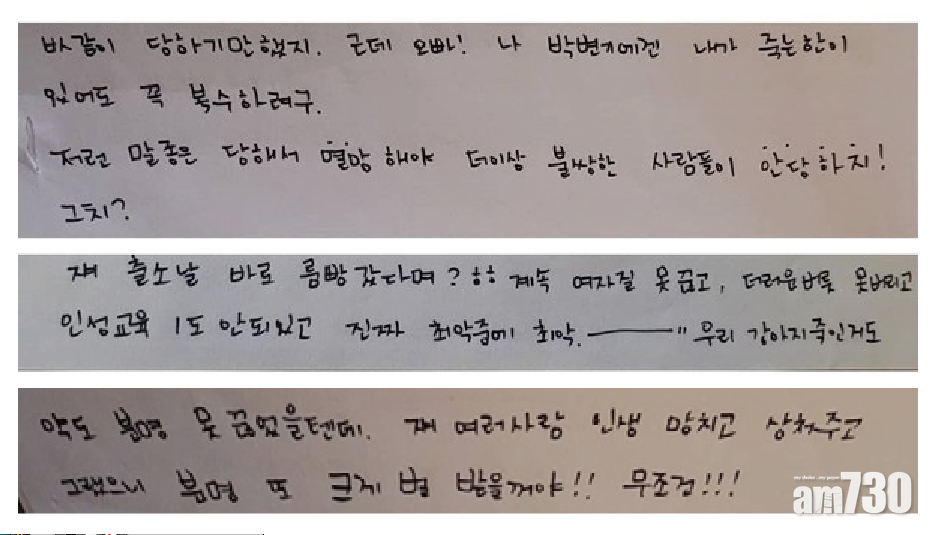 바보같이 당하기만했지. 근데 오빠! 나 박변기에겐 내가 죽는한이
있어도 꼭 복수하려구.
저런 말종은 당해서 멸망해야 더이상 불쌍한 사람들이 안당하지!
그치?
쟤 출소날 바로 룸빵갔다며? ㅎㅎ 계속 여자질 못끊고, 더러운버릇 못버리고
인성교육 1도 안되있고 진짜 최악중에 최악. ———" 우리 강아지죽인거도
약도 분명 못 끊었을텐데. 쟤 여러사람 인생 망치고 상처주고
그랬으니 분명 또 크게 벌 받을꺼야!! 무조건!!!
am730